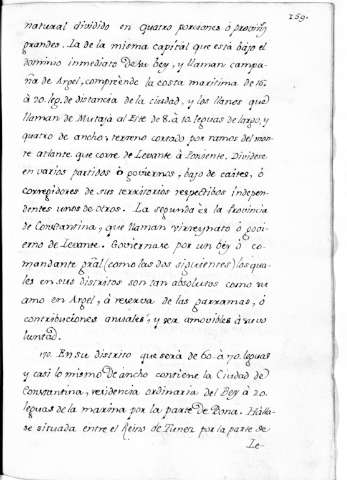 169.
natural dividido en quatro porciones ò provin
grandes. La de la misma capital que està bajo el
dominio inmediato de su Bey, y llaman campa-
ña de Argel, comprende la costa maritima de 15
à 20. leg. de distancia de la ciudad, y los llanos que
llaman de Mutaja al Este de 8. à 10. leguas de largo, y
quatro de ancho, terreno cortado por ramos del mon-
te atlante que corre de Levante à Poniente. Dividese
en varios partidos ò goviernos, bajo de caites, ò
corregidores de sus territorios respectibos indepen-
dentes unos de otros. La segunda es la Provincia
de Constantina, que llaman virreynato ò govi-
erno de Levante. Goviernase por un bey ò co-
mandante gral (como las dos siguientes) los qua-
les en sus distritos son tan absolutos como su
amo en Argel, à reserva de las garramas, ò
contribuciones anuales, y ser amovibles à su vo
luntad.
170. En su distrito que serà de 60. à 70. leguas
y casi lo mismo de ancho contiene la Ciudad de
Constantina, residencia ordinaria del Bey à 20.
leguas de la marina por la parte de Bona. Hàlla-
se situada entre el Reino de Tunez por la parte de
Le-